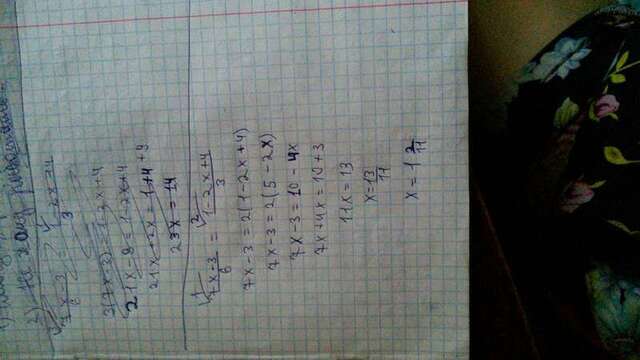 2) Не
7x-3/6 = 1-2x+4/3
3(7x-3)=1-2x+4
21x-9=1-2x+4
21x+2x=1+4+9
23x=14
1 2
7x-3/6 = 1-2x+4/3
7x-3=2(1-2x+4)
7x-3=2(5-2x)
7x-3=10-4x
7x+4x=10+3
11x=13
x=13/11
x=1 2/11